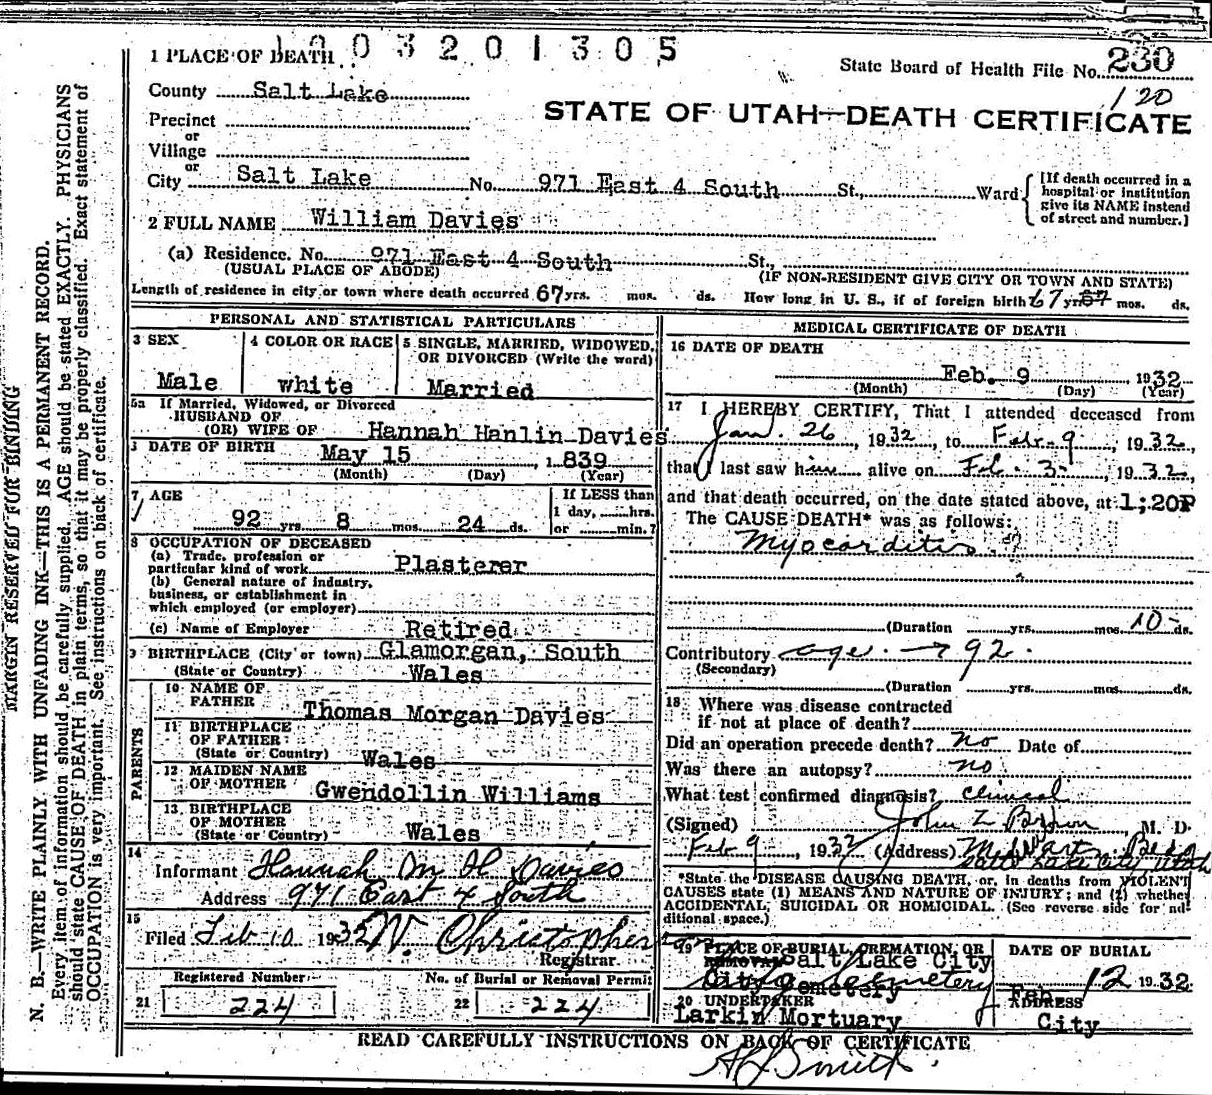 1003201305
1 PLACE OF DEATH
State Board of Health File No. 230
120
County Salt Lake
STATE OF UTAH—DEATH CERTIFICATE
Precinct
or
Village
or
City Salt Lake No. 971 East 4 South St., Ward
[If death occurred in a hospital or institution give its NAME instead of street and number.]
2 FULL NAME William Davies
(a) Residence. No. 971 East 4 South St.,
(USUAL PLACE OF ABODE) (IF NON-RESIDENT GIVE CITY OR TOWN AND STATE)
Length of residence in city or town where death occurred 67 yrs. mos. ds. How long in U. S., if of foreign birth 67 yrs. mos. ds.
PERSONAL AND STATISTICAL PARTICULARS
3 SEX
Male
4 COLOR OR RACE
white
5 SINGLE, MARRIED, WIDOWED, OR DIVORCED (Write the word)
Married
5a If Married, Widowed, or Divorced
HUSBAND OF
(OR) WIFE OF Hannah Hanlin Davies
DATE OF BIRTH May 15, 1839
(Month) (Day) (Year)
7 AGE
92 yrs. 8 mos. 24 ds.
If LESS than
1 day, hrs.
or min.?
8 OCCUPATION OF DECEASED
(a) Trade, profession or
particular kind of work Plasterer
(b) General nature of industry,
business, or establishment in
which employed (or employer)
(c) Name of Employer Retired
9 BIRTHPLACE (City or town) Glamorgan, South
(State or Country) Wales
PARENTS
10 NAME OF
FATHER Thomas Morgan Davies
11 BIRTHPLACE
OF FATHER
(State or Country) Wales
12 MAIDEN NAME
OF MOTHER Gwendollin Williams
13 BIRTHPLACE
OF MOTHER
(State or Country) Wales
14
Informant Hannah M H Davies
Address 971 East 4 South
15
Filed Feb 10 1932 Christopherson
Registrar.
Registered Number
21 224
No. of Burial or Removal Permit
22 224
MEDICAL CERTIFICATE OF DEATH
16 DATE OF DEATH
Feb. 9 1932
(Month) (Day) (Year)
17 I HEREBY CERTIFY, That I attended deceased from
Jan. 26, 1932, to Feb. 9, 1932,
that I last saw him alive on Feb. 3, 1932,
and that death occurred, on the date stated above, at 1;20P
The CAUSE DEATH* was as follows:
Myocarditis
(Duration yrs. mos. 10 ds.
Contributory age. → 92.
(Secondary)
(Duration yrs. mos. ds.
18 Where was disease contracted
if not at place of death?
Did an operation precede death? no Date of
Was there an autopsy? no
What test confirmed diagnosis? clinical
(Signed) John Z Brown, M. D.
Feb 9, 1932 (Address) Med Arts Bldg
Salt Lake City, Utah
*State the DISEASE CAUSING DEATH, or, in deaths from VIOLENT
CAUSES state (1) MEANS AND NATURE OF INJURY; and (2) whether
ACCIDENTAL, SUICIDAL OR HOMICIDAL. (See reverse side for ad-
ditional space.)
19 PLACE OF BURIAL, CREMATION, OR
REMOVAL Salt Lake City
City Cemetery
DATE OF BURIAL
Feb 12 1932
20 UNDERTAKER
Larkin Mortuary
ADDRESS
City
READ CAREFULLY INSTRUCTIONS ON BACK OF CERTIFICATE
Smith
MARGIN RESERVED FOR BINDING
N. B.—WRITE PLAINLY WITH UNFADING INK—THIS IS A PERMANENT RECORD.
Every item of information should be carefully supplied. AGE should be stated EXACTLY. PHYSICIANS
should state CAUSE OF DEATH in plain terms, so that it may be properly classified. Exact statement of
OCCUPATION is very important. See instructions on back of certificate.